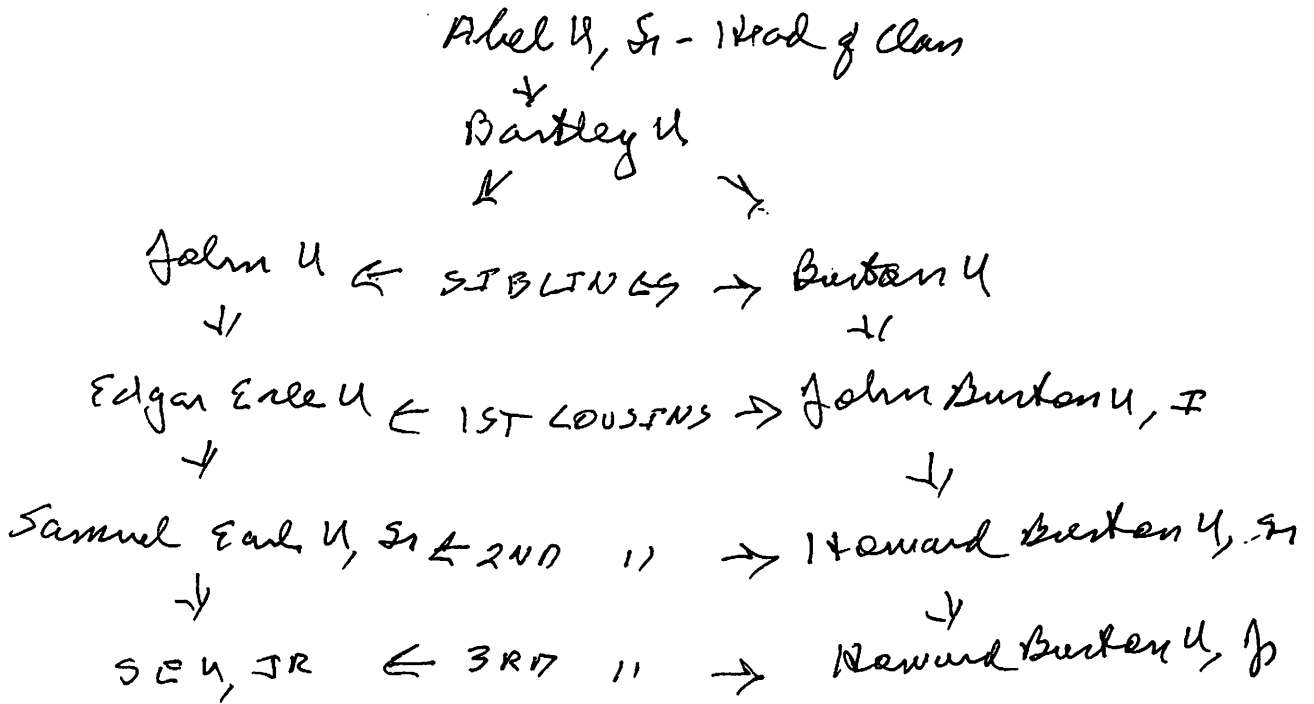 Abel U, Sr - Head of Clan
Bartley U
John U ← SIBLINGS → Burton U
Edgar Erle U ← 1ST COUSINS → John Burton U, I
Samuel Earl U, Sr ← 2ND " → Howard Burton U, Sr
SEU, JR ← 3RD " → Howard Burton U, Jr